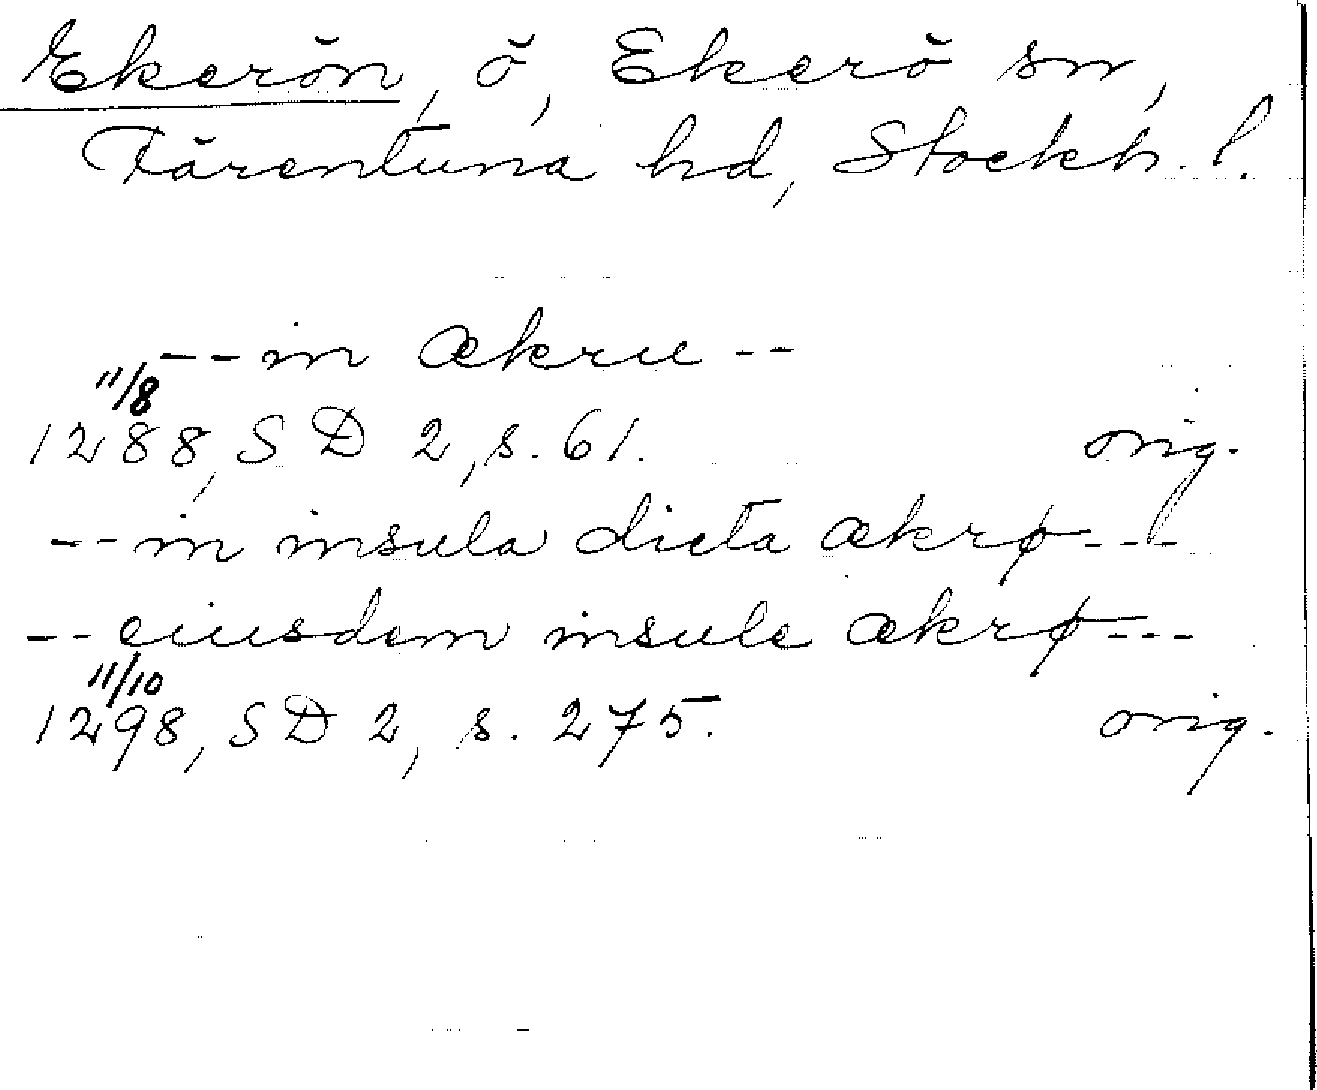 Ekerön, ö, Ekerö sn,
Färentuna hd, Stockh. l.
-- in ækru --
11/8
1288, SD 2, s. 61. orig.
-- in insula dicta ækrø ---
-- eiusdem insule ækrø ---
11/10
1298, SD 2, s. 275. orig.